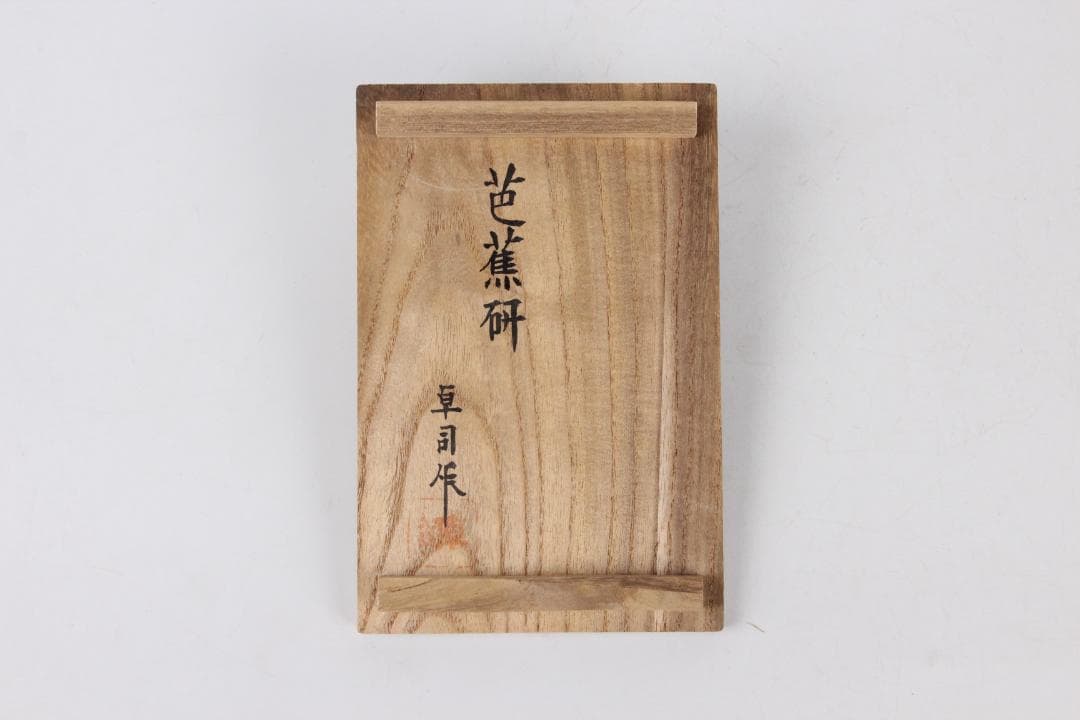 芭蕉研
卓司作